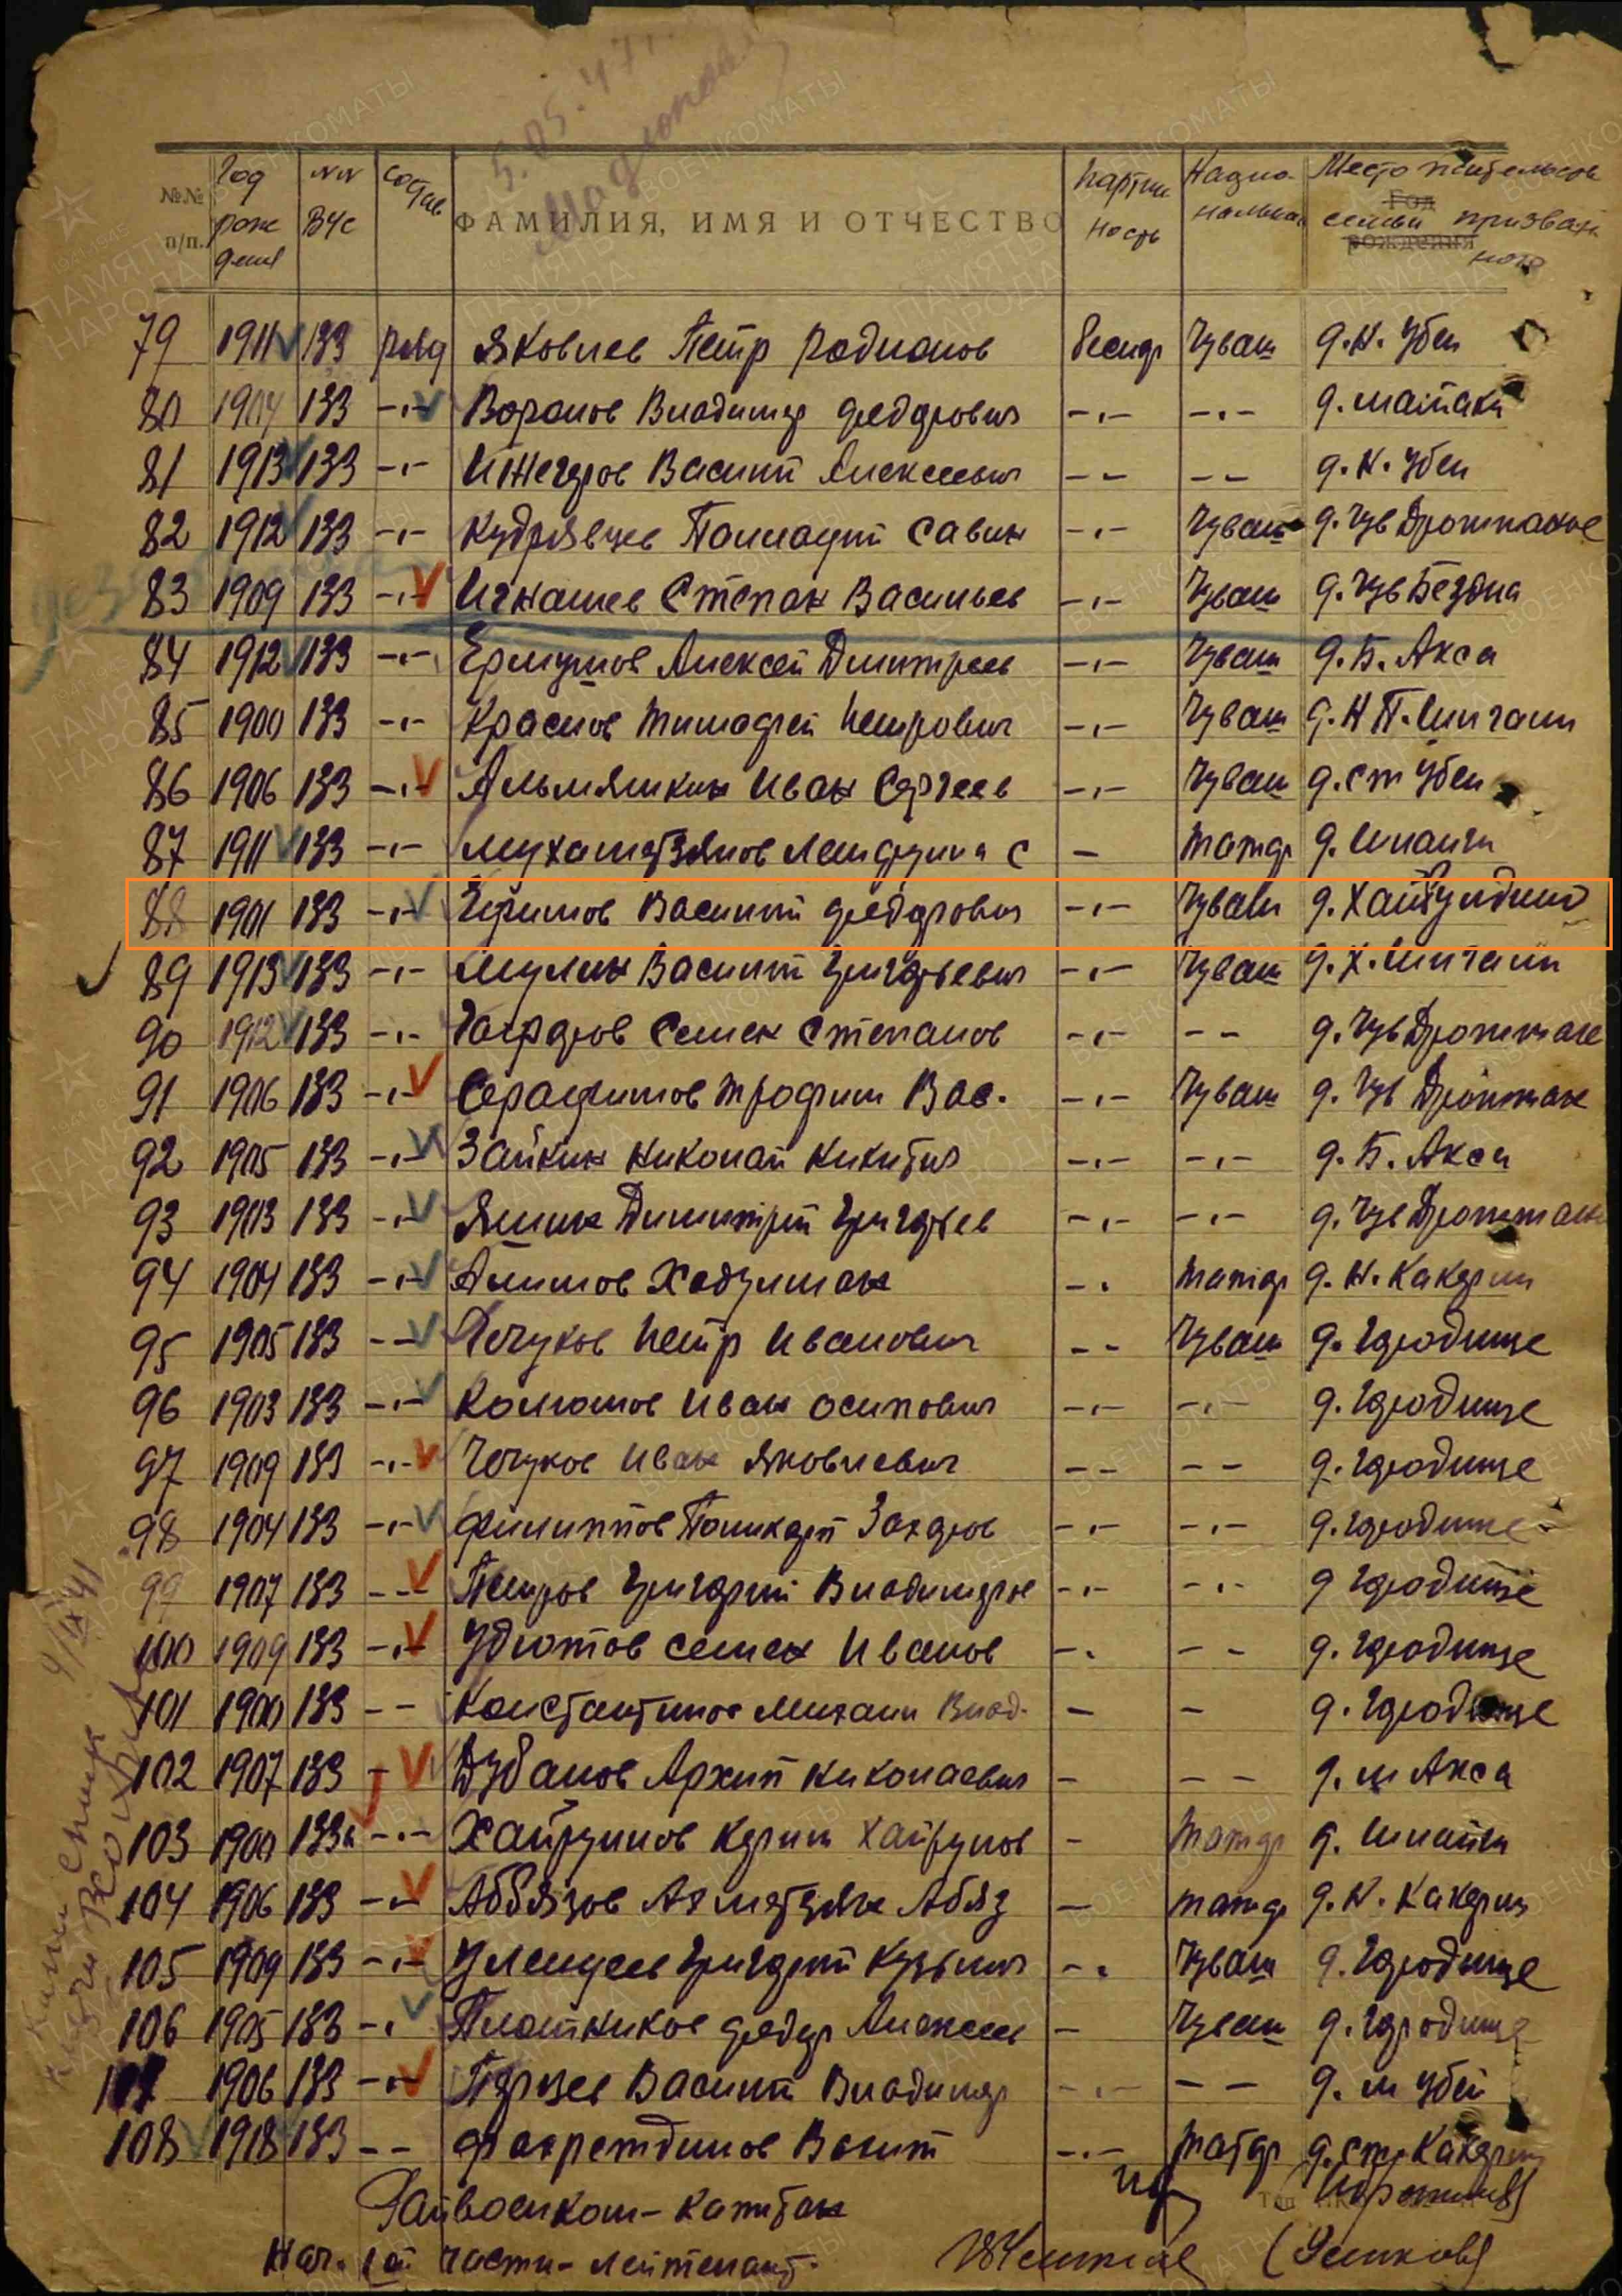 5.05.47г.
№№ п/п. Год рождения №№ ВУС Состав ФАМИЛИЯ, ИМЯ И ОТЧЕСТВО Партийность Национальн Место жительств семьи призванного
79 1911 133 ряд Яковлев Петр Родионов беспар Чуваш д. Н. Убеи
80 1904 133 -"- Воронов Владимир Федорович -"- -"- д. Матаки
81 1913 133 -"- Ижедеров Василий Алексеевич - - - - д. Н. Убеи
82 1912 133 -"- Кудрявцев Палладий Савин -"- Чуваш д. Чув Дрожжаное
83 1909 133 -"- Игнашев Степан Васильев -"- Чуваш д. Чув Бездна
84 1912 133 -"- Ермушов Алексей Дмитриев -"- Чуваш д. Б. Акса
85 1900 133 -"- Краснов Тимофей Петрович -"- Чуваш д. Н П. Чипчаги
86 1906 133 -"- Альмяшкин Иван Сергеев -"- Чуваш д. Ст Убеи
87 1911 133 -"- Мухаметзянов С - Татар д. Шланга
88 1901 133 -"- Ефимов Василий Федорович -"- Чуваш д.
89 1913 133 -"- Мулин Василий Григорьевич -"- Чуваш д. Х.
90 1912 133 -"- Семен Степанов -"- - - д. Чув Дрожжаное
91 1906 133 -"- Серафимов Трофим Вас. -"- Чуваш д. Чув Дрожжаное
92 1905 133 -"- Зайкин Николай Никитич -"- -"- д. Б. Акса
93 1903 133 -"- Димитрий Григорьев -"- -"- д. Чув Дрожжаное
94 1904 133 -"- Алимов - . Татар д. Н. Какерли
95 1905 133 - - Петр Иванович - - Чуваш д. Городище
96 1903 133 -"- Иван Осипович -"- -"- д. Городище
97 1909 133 -"- Чочуков Иван Яковлевич - - - - д. Городище
98 1904 133 -"- Филиппов Поликарп Захаров -"- -"- д. Городище
99 1907 133 - - Петров Григорий Владимиров -"- -"- д Городище
100 1909 133 -"- Удютов Семен Иванов - . - - д. Городище
101 1900 133 - - Константинов Михаил Влад. - - д. Городище
102 1907 133 - Дубанов Архип Николаевич - - - д. м Акса
103 1900 133а -"- Хайруллов Керим Хайрулов - Татар д. Шланга
104 1906 133 -"- Аббязов Ахметзян Абяз - татар д. Н. Какерли
105 1909 133 -"- Улендеев Григорий Кузьмич - . Чуваш д. Городище
106 1905 133 - . Плотников Федор Алексеев - Чуваш д. Городище
107 1906 133 -"- Василий Владимир -"- - - д. м Убеи
108 1918 133 - - Фахретдинов Вагит -"- Татар д. ст. Какерли
Райвоенком - капитан
Нач. 1ой части - лейтенант
ПАМЯТЬ НАРОДА
ВОЕНКОМАТЫ